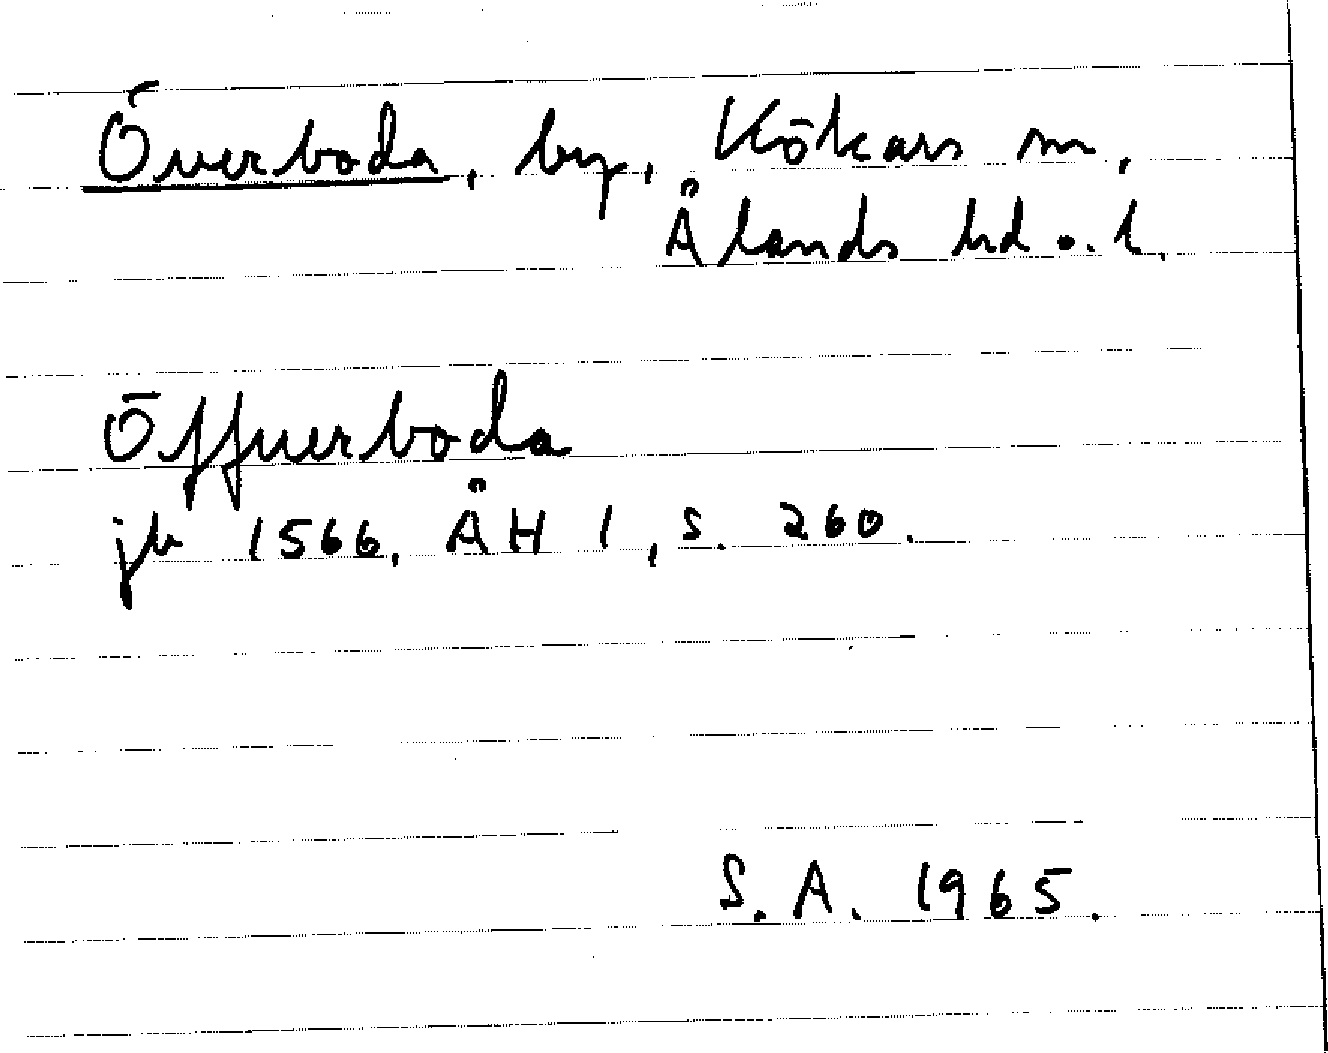 Överboda, by, Kökars sn,
Ålands hd o. l.
Öffuerboda
jb 1566, ÅH 1, s. 260.
S.A. 1965.